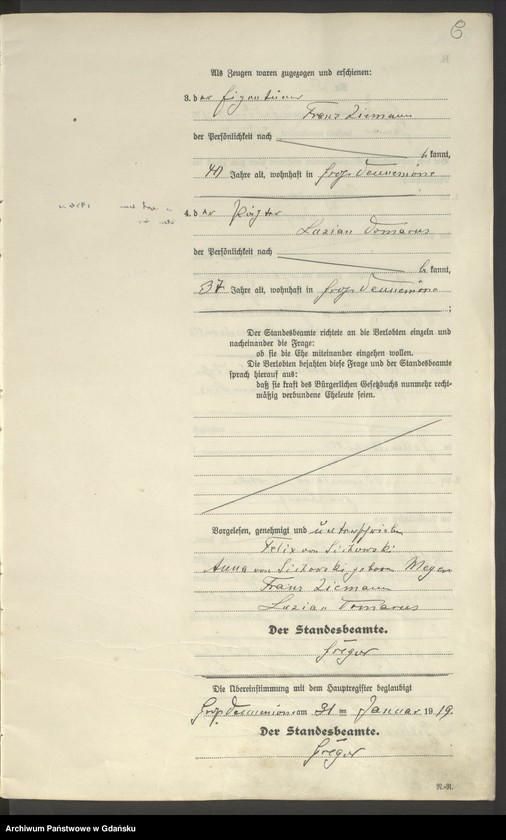 C
Als Zeugen waren zugezogen und erschienen:
3. der Eigentümer
Franz Ziemann
der Persönlichkeit nach
b. kannt,
40 Jahre alt, wohnhaft in Groß
4. der Pächter
Luzian Tomarus
der Persönlichkeit nach
b. kannt,
37 Jahre alt, wohnhaft in Groß
;
Der Standesbeamte richtete an die Verlobten einzeln und
nacheinander die Frage:
ob sie die Ehe miteinander eingehen wollen.
Die Verlobten bejahten diese Frage und der Standesbeamte
sprach hierauf aus:
daß sie kraft des Bürgerlichen Gesetzbuchs nunmehr recht-
mäßig verbundene Eheleute seien.
Vorgelesen, genehmigt und unterschrieben
Felix von Sichowski
Anna von Sichowski geboren Meyer
Franz Ziemann
Luzian Tomarus
Der Standesbeamte.
Gregor
Die Übereinstimmung mit dem Hauptregister beglaubigt
Groß am 31 ten Januar 1919.
Der Standesbeamte.
Gregor
R.-R.
Archiwum Państwowe w Gdańsku